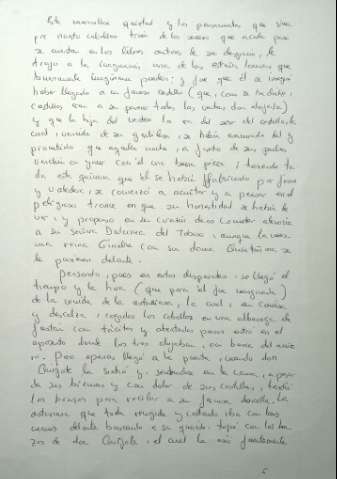 Esta maravillosa quietud y los pensamientos que siem
pre nuestro caballero traía de los sucesos que a cada paso
se cuentan en los libros autores de su desgracia, le
trujo a la imaginación una de las extrañas locuras que
buenamente imaginarse pueden; y fue que él se imaginó
haber llegado a un famoso castillo (que, como se ha dicho,
castillos eran a su parecer todas las ventas donde alojaba)
y que la hija del ventero lo era del señor del castillo, la
cual, vencida de su gentileza, se había enamorado dél y
prometido que aquella noche, a furto de sus padres,
vendría a yacer con él una buena pieza; teniendo to
da esta quimera que él se había fabricado por firme
y valedera, se comenzó a acuitar y a pensar en el
peligroso trance en que su honestidad se había de
ver, y propuso en su corazón de no cometer alevosía
a su señora Dulcinea del Toboso, aunque la mesma
reina Ginebra con su dama Quintañona se
le pusiesen delante.
Pensando, pues, en estos disparates, se llegó el
tiempo y la hora (que para él fue menguada)
de la venida de la asturiana, la cual, en camisa
y descalza, cogidos los cabellos en una albanega de
fustán, con tácitos y atentados pasos entró en el
aposento donde los tres alojaban, en busca del arrie
ro. Pero apenas llegó a la puerta, cuando don
Quijote la sintió y, sentándose en la cama, a pesar
de sus bizmas y con dolor de sus costillas, tendió
los brazos para recibir a su fermosa doncella. La
asturiana, que toda recogida y callando iba con las
manos delante buscando a su querido, topó con los bra
zos de don Quijote, el cual la asió fuertemente